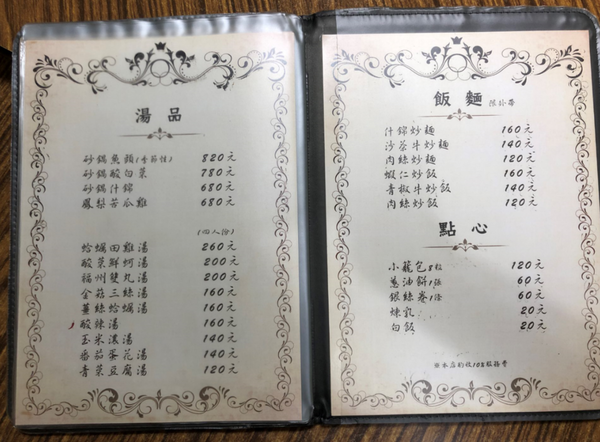 湯品
砂鍋魚頭(季節性) 820元
砂鍋酸白菜 780元
砂鍋什錦 680元
鳳梨苦瓜雞 680元
(四人份)
蛤蠣田雞湯 260元
酸菜鮮蚵湯 200元
福州雙丸湯 200元
金菇三絲湯 160元
薑絲蛤蠣湯 160元
酸辣湯 160元
玉米濃湯 140元
番茄蛋花湯 140元
青菜豆腐湯 120元
飯麵 限外帶
什錦炒麵 160元
沙茶牛炒麵 140元
肉絲炒麵 120元
蝦仁炒飯 160元
青椒牛炒飯 140元
肉絲炒飯 120元
點心
小籠包8粒 120元
蔥油餅1張 60元
銀絲卷1條 60元
煉乳 20元
白飯 20元
※本店酌收10%服務費